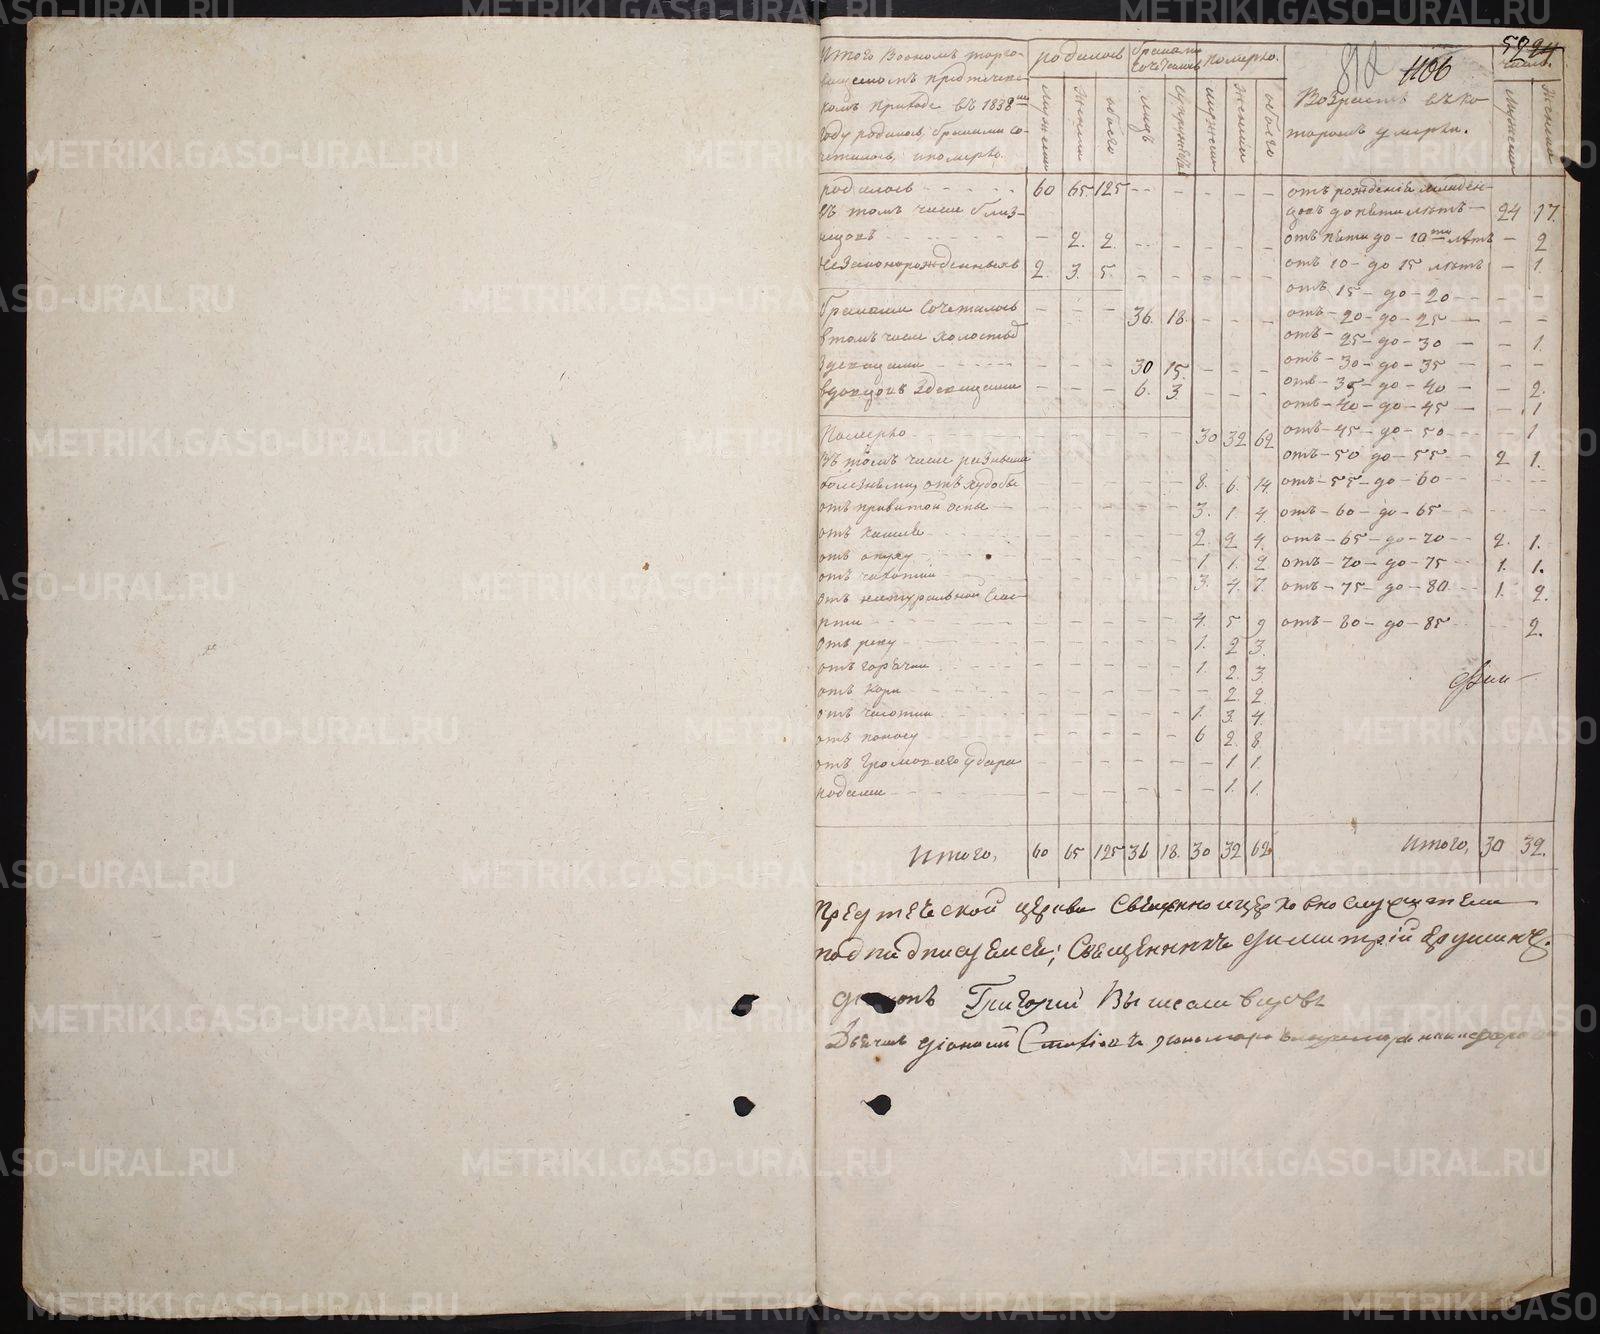 818 1106 522
Итого Воономъ торго-
вищенскомъ предтечен-
скомъ приходе въ 1838мъ
году родилось, браками со-
четалось, и померло.
родилось
браками сочеталось
померло.
Возрастъ въ ко-
торомъ умерли.
число.
мужеска
женска
обоего
лицъ
супружествъ
мужеска
женска
обоего
мужеска
женска
родилось - - - - 60 65 125 - - - - - отъ рожденія младен-
Въ томъ числе близ- цовъ до пяти летъ - 24 17
нецовъ - - - - - 2. 2. - - - - - отъ пяти до - 10ти летъ - 2
незаконорожденныхъ 2. 3. 5. - - - - - отъ 10 - до 15 летъ - 1.
отъ 15 - до - 20 - - - -
браками сочеталось - - - 36. 18. - - - отъ - 20 - до - 25 - - -
втомъ числе холостыхъ отъ - 25 - до - 30 - - 1.
здевицами - - - 30 15. - - - отъ - 30 - до - 35 - - -
вдовцовъ здевицами - - - 6. 3 - - - отъ - 35 - до - 40 - - 2.
отъ - 40 - до - 45 - - 1
Померло - - - - - 30 32 62 отъ - 45 - до - 50 - - 1
Въ томъ числе разными отъ - 50 до - 55 - - 2 1.
болезньми, отъ худобы - - - - - 8. 6. 14. отъ - 55 - до - 60 - -
отъ привитой оспы - - - - - 3. 1 4 отъ - 60 - до - 65 - -
отъ кашля - - - - - 2. 2 4. отъ - 65 - до - 70 - - 2. 1.
отъ опуху - - - - - 1 1. 2 отъ - 70 - до - 75 - - 1. 1.
отъ чахотки - - - - - 3. 4. 7. отъ - 75 - до - 80 - - 1. 2.
отъ натуральной сме-
рти - - - - - 4. 5 9 отъ - 80 - до - 85 - - 2.
отъ - - - - - 1. 2 3.
отъ горячки - - - - - 1. 2. 3.
отъ кори - - - - - - 2. 2.
отъ - - - - - 1. 3. 4.
отъ поносу - - - - - 6 2. 8.
отъ громоваго удара - - - - - - 1. 1.
родами - - - - - - 1. 1.
Итого, 60 65 125 36 18. 30 32 62 Итого, 30 32.
Предтеческой церкви Священно и церковнослужители
подпидписуемся; Священникъ Димитрій
Григорий
Дьячекъ пономарь